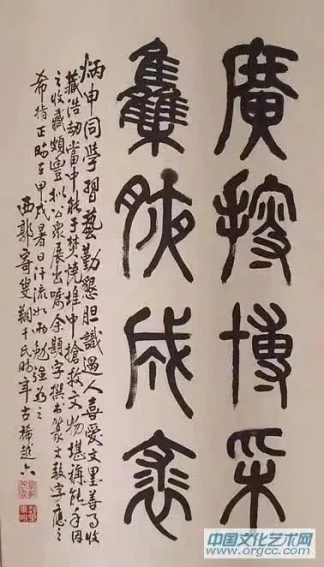 廣搜博采
集腋成裘
炳申同學習藝勤懇胆識過人喜愛文墨善於收
藏浩劫當中能于焚燒堆中搶救文物堪稱能手因
之收藏頗豐拟公眾展出囑余題字撰書篆文數字應之
希指正時在甲戌暑日汗流如雨勉強為之
西郭寄叟翔千氏時年古稀
中国文化艺术网
www.orgcc.com